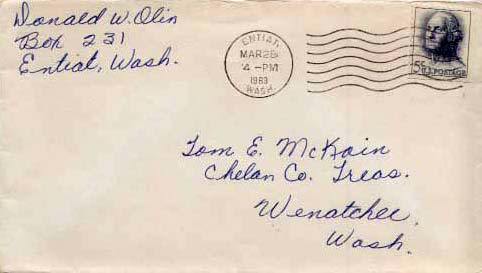 Donald W. Olin
Box 231
Entiat, Wash.
ENTIAT,
MAR 28
4 - PM
1963
WASH.
5¢ U.S. POSTAGE
Tom E. McKoin
Chelan Co. Treas.
Wenatchee,
Wash.